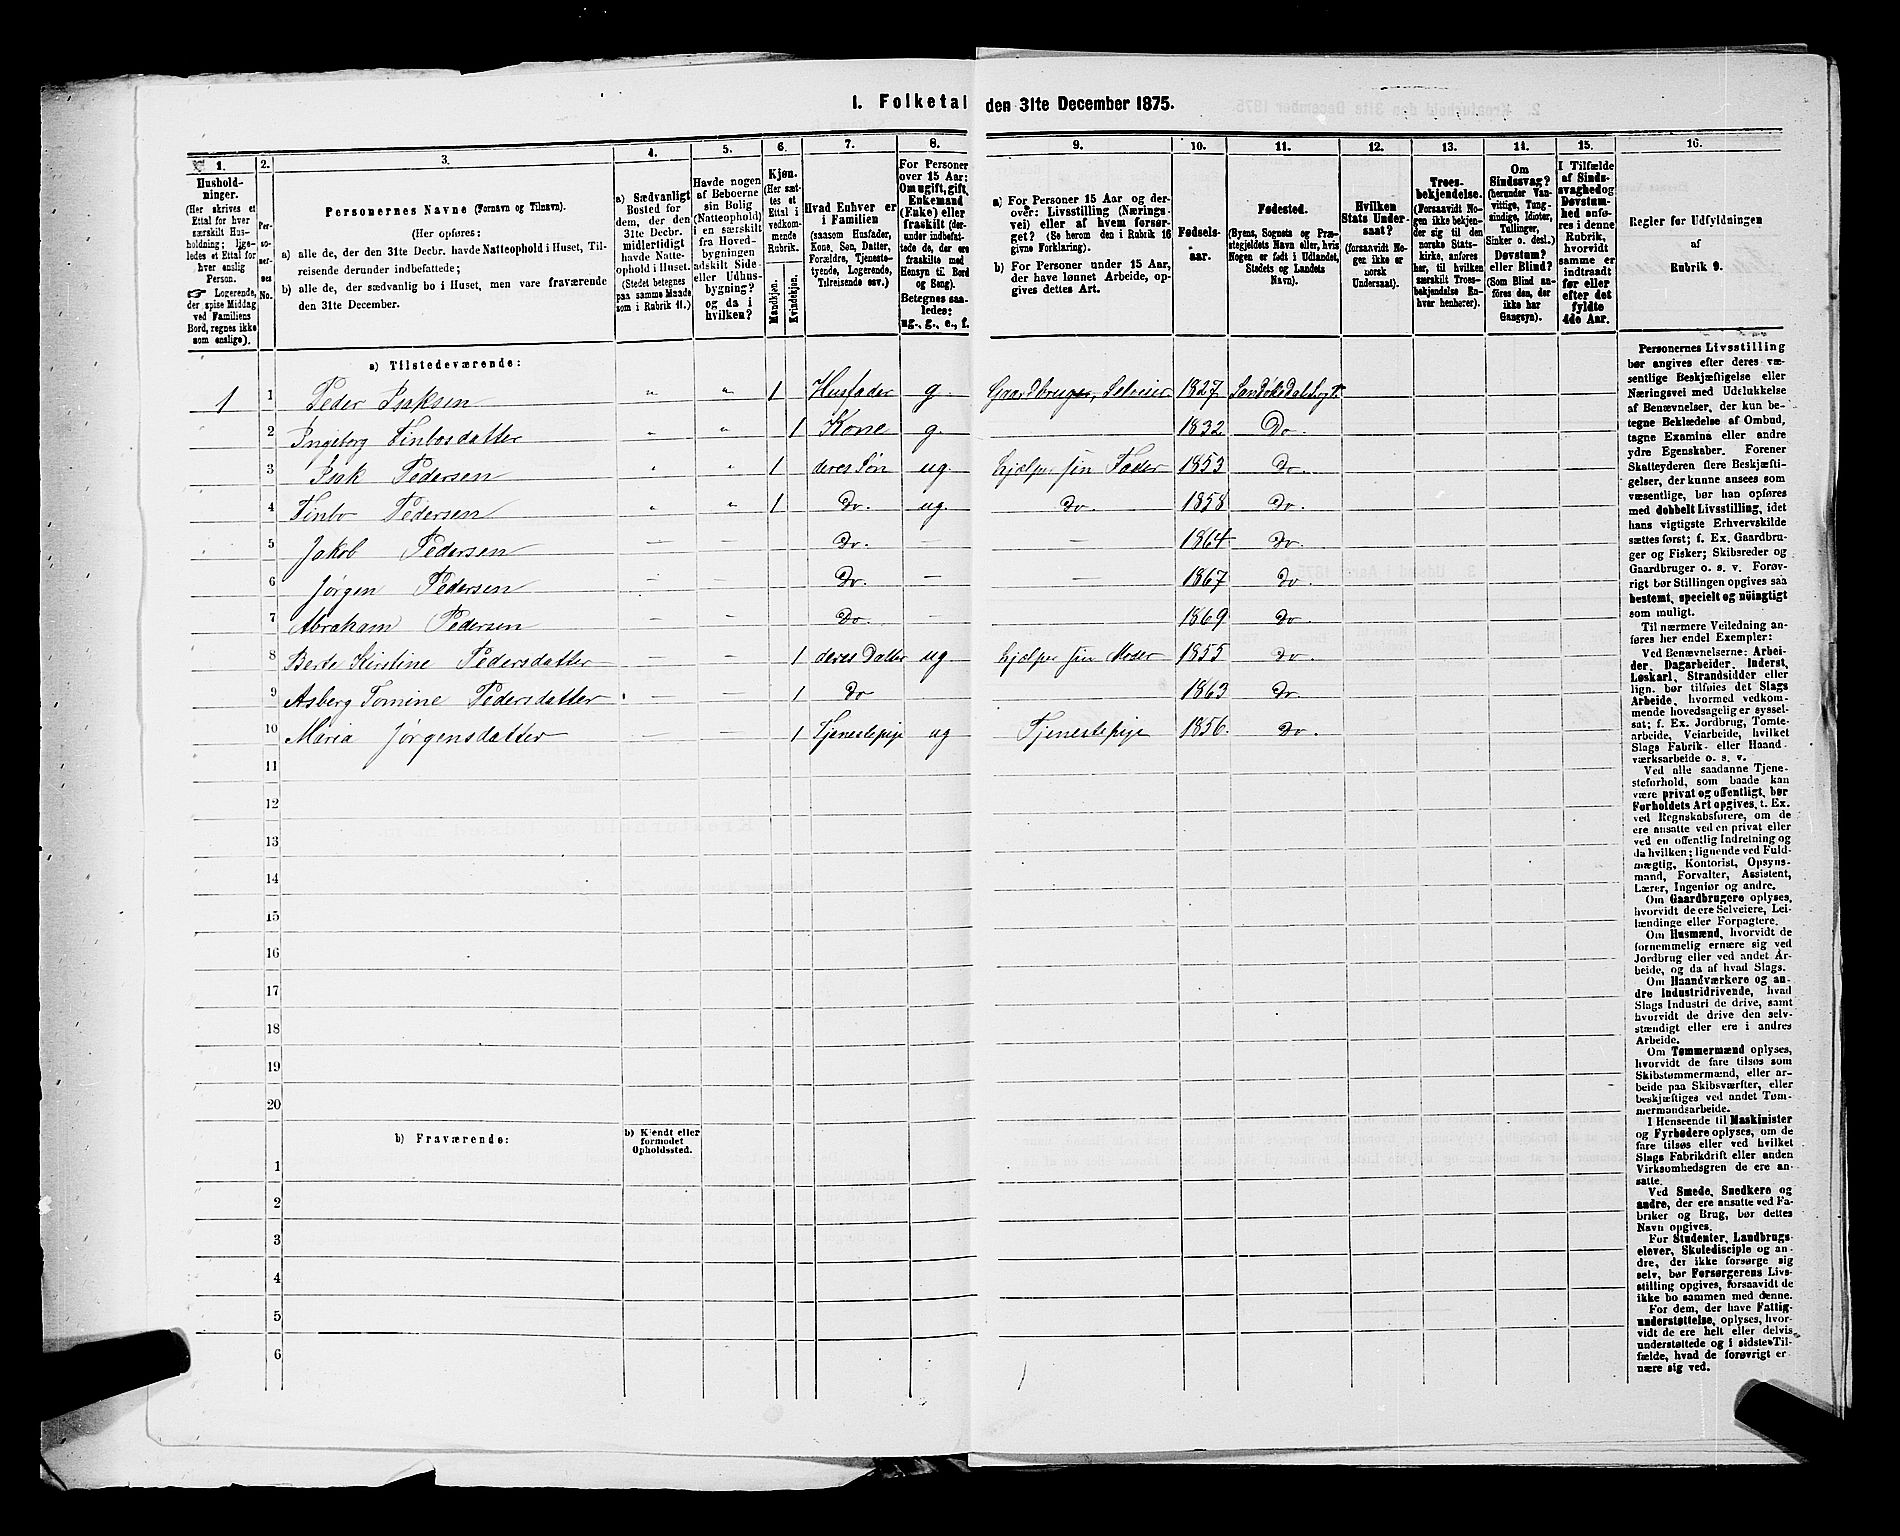 1. Folketal den 31te December 1875.
1. 2. 3. 4. 5. 6. 7. 8. 9. 10. 11. 12. 13. 14. 15. 16.
Husholdninger.
(Her skrives et
Ettal for hver
særskilt Husholdning;
ligeledes et Ettal for
hver enslig
Person.
☞ Logerende,
der spise Middag
ved Familiens
Bord, regnes ikke
som enslige).
Personernes No.
Personernes Navne (Fornavn og Tilnavn).
(Her opføres:)
a) alle de, der den 31te Decbr. havde Natteophold i Huset, Tilreisende derunder indbefattede;
b) alle de, der sædvanlig bo i Huset, men vare fraværende
den 31te December.
a) Sædvanligt
Bosted for
dem, der den
31te Decbr.
midlertidigt
havde Natteophold i Huset.
(Stedet betegnes
paa samme Maade
som i Rubrik 11.)
Havde nogen
af Beboerne
sin Bolig
(Natteophold)
i en særskilt
fra Hovedbygningen
adskilt Side-
eller Udhusbygning?
og da i
hvilken?
Kjøn.
(Her sættes et
Ettal i
vedkommende
Rubrik.
Mandkjøn.
Kvindekjøn.
Hvad Enhver er
i Familien
(saasom Husfader,
Kone, Søn, Datter,
Forældre, Tjenestetyende, Logerende,
Tilreisende osv.)
For Personer
over 15 Aar:
Om ugift, gift,
Enkemand
(Enke) eller
fraskilt (derunder indbefattede de, der ere
fraskilte med
Hensyn til Bord
og Seng).
Betegnes saaledes:
ug., g., e., f.
a) For Personer 15 Aar og derover: Livsstilling (Næringsvei) eller af hvem forsørget? (Se herom den i Rubrik 16
givne Forklaring).
b) For Personer under 15 Aar,
der have lønnet Arbeide, opgives dettes Art.
Fødselsaar.
Fødested.
(Byens, Sognets og Præstegjeldets Navn eller, hvis
Nogen er født i Udlandet,
Stedets og Landets
Navn).
Hvilken
Stats Undersaat?
(forsaavidt Nogen ikke er
norsk
Undersaat).
Troesbekjendelse.
(Forsaavidt Nogen ikke bekjender sig til den
norske Statskirke, anføres
her, til hvilken
særskilt Troesbekjendelse Enhver henhører).
Om
Sindssvag?
(herunder Vanvittige, Tungsindige, Idioter,
Tullinger,
Sinker o. desl.)
Døvstum?
eller Blind?
(Som Blind anføres den, der
ikke har
Gangsyn).
I Tilfælde
af Sindssvaghed og
Døvstumhed anføres i denne
Rubrik,
hvorvidt
samme er
indtraadt
før eller
efter det
fyldte
4de Aar.
Regler for Udfyldningen
af
Rubrik 9.
a) Tilstedeværende:
1 1 Peder Isaksen " " 1 Husfader g. Gaardbruger, Selveier 1827
2 Ingeborg Finbosdatter " " 1 Kone g. 1832 Do.
3 Isak Pedersen " " 1 deres Søn ug. hjælper sin Fader 1853 Do.
4 Finbo Pedersen " " 1 Do. ug. Do. 1858 Do.
5 Jakob Pedersen — — Do. — — 1864 Do.
6 Jørgen Pedersen — — Do. — — 1867 Do
7 Abraham Pedersen — — Do. 1869 Do.
8 Berte Kirstine Pedersdatter — — 1 deres Datter ug hjælper sin Moder 1855 Do.
9 Asberg Tomine Pedersdatter — — 1 Do 1863 Do.
10 Maria Jørgensdatter — — 1 Tjenestepige ug Tjenestepige 1856. Do.
11
12
13
14
15
16
17
18
19
20
b) Fraværende: b) Kjendt eller
formodet
Opholdssted.
1
2
3
4
5
6
Personernes Livsstilling
bør angives efter deres væsentlige Beskjæftigelse eller
Næringsvei med Udelukkelse
af Benævnelser, der kun betegne Beklædelse af Ombud,
tagne Examina eller andre
ydre Egenskaber. Forener
Skatteyderen flere Beskjæftigelser, der kunne ansees som
væsentlige, bør han opføres
med dobbelt Livsstilling, idet
hans vigtigste Erhvervskilde
sættes først; f. Ex. Gaardbruger og Fisker; Skibsreder og
Gaardbruger o. s. v. Forøvrigt bør Stillingen opgives saa
bestemt, specielt og nöiagtigt
som muligt.
Til nærmere Veiledning anføres her endel Exempler:
Ved Benævnelserne: Arbeider, Dagarbeider, Inderst,
Løskarl, Strandsidder eller
lign. bør tilføies det Slags
Arbeide, hvormed vedkommende hovedsagelig er sysselsat; f. Ex. Jordbrug, Tomtearbeide, Veiarbeide, hvilket
Slags Fabrik- eller Haandværksarbeide o. s. v.
Ved alle saadanne Tjenesteforhold, som baade kan
være privat og offentligt, bør
Forholdets Art opgives, t. Ex.
ved Regnskabsførere, om de
ere ansatte ved en privat eller
ved en offentlig Indretning og
da hvilken; lignende ved Fuldmægtig, Kontorist, Opsynsmand, Forvalter, Assistent,
Lærer, Ingeniør og andre.
Om Gaardbrugere oplyses,
hvorvidt de ere Selveiere, Leilændinge eller Forpagtere.
Om Husmænd, hvorvidt de
fornemmelig ernære sig ved
Jordbrug eller ved andet Arbeide, og da af hvad Slags.
Om Haandværkere og andre Industridrivende, hvad
Slags Industri de drive, samt
hvorvidt de drive den selvstændigt eller ere i andres
Arbeide.
Om Tømmermænd oplyses,
hvorvidt de fare tilsøs som
Skibstømmermænd, eller arbeide paa Skibsværfter, eller
beskjæftiges ved andet Tømmermandsarbeide.
I Henseende til Maskinister
og Fyrbødere oplyses, om de
fare tilsøs eller ved hvilket
Slags Fabrikdrift eller anden
Virksomhedsgren de ere ansatte.
Ved Smede, Snedkere og
andre, der ere ansatte ved Fabriker og Brug, bør dettes
Navn opgives.
For Studenter, Landbrugselever, Skoledisciple og andre, der ikke forsørge sig
selv, bør Forsørgerens Livsstilling opgives, forsaavidt de
ikke bo sammen med denne.
For dem, der have Fattigunderstøttelse, oplyses, hvorvidt de ere helt eller delvis
understøttede og i sidste Tilfælde, hvad de forøvrigt ernære sig ved.